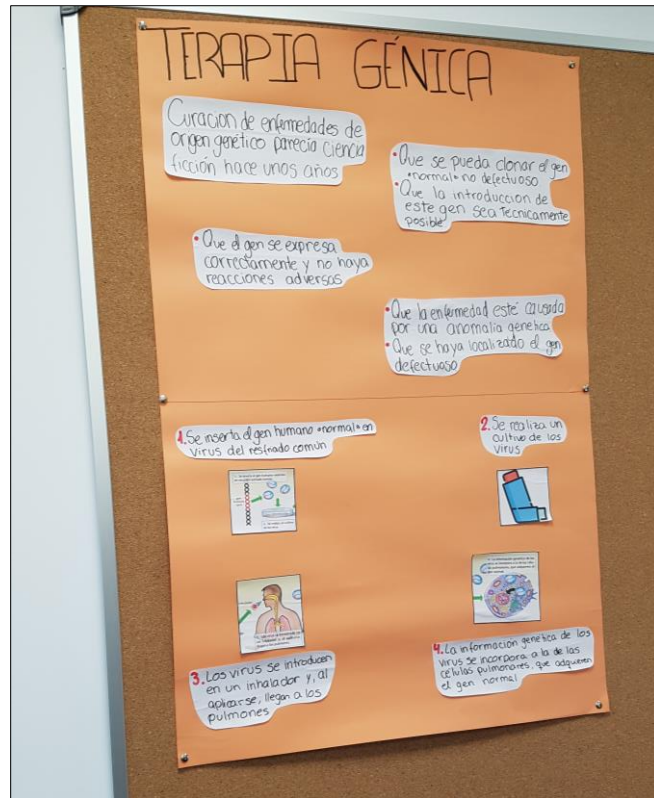 TERAPIA GÉNICA
Curacion de enfermedades de
origen genético parecía ciencia
ficción hace unos años
• Que se pueda clonar el gen
"normal" no defectuoso
• Que la introduccion de
este gen sea Tecnicamente
posible
• Que el gen se expresa
correctamente y no haya
reacciones adversas
• Que la enfermedad esté causada
por una anomalia genetica
• Que se haya localizado el gen
defectuoso
1. Se inserta el gen humano "normal" en
virus del resfriado común
2. Se realiza un
cultivo de los
virus
3. Los virus se introducen
en un inhalador y, al
aplicarse, llegan a los
pulmones
4. La informacion genetica de los
virus se incorpora a la de las
células pulmonares, que adquieren
el gen normal